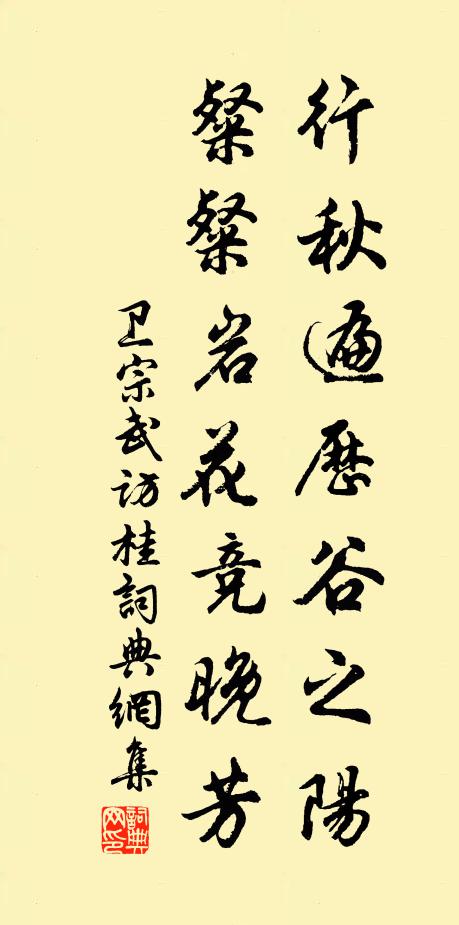 行秋遍歷谷之陽
粲粲岩花竞晚芳
卫宗武访桂詞典網集
詞典网印